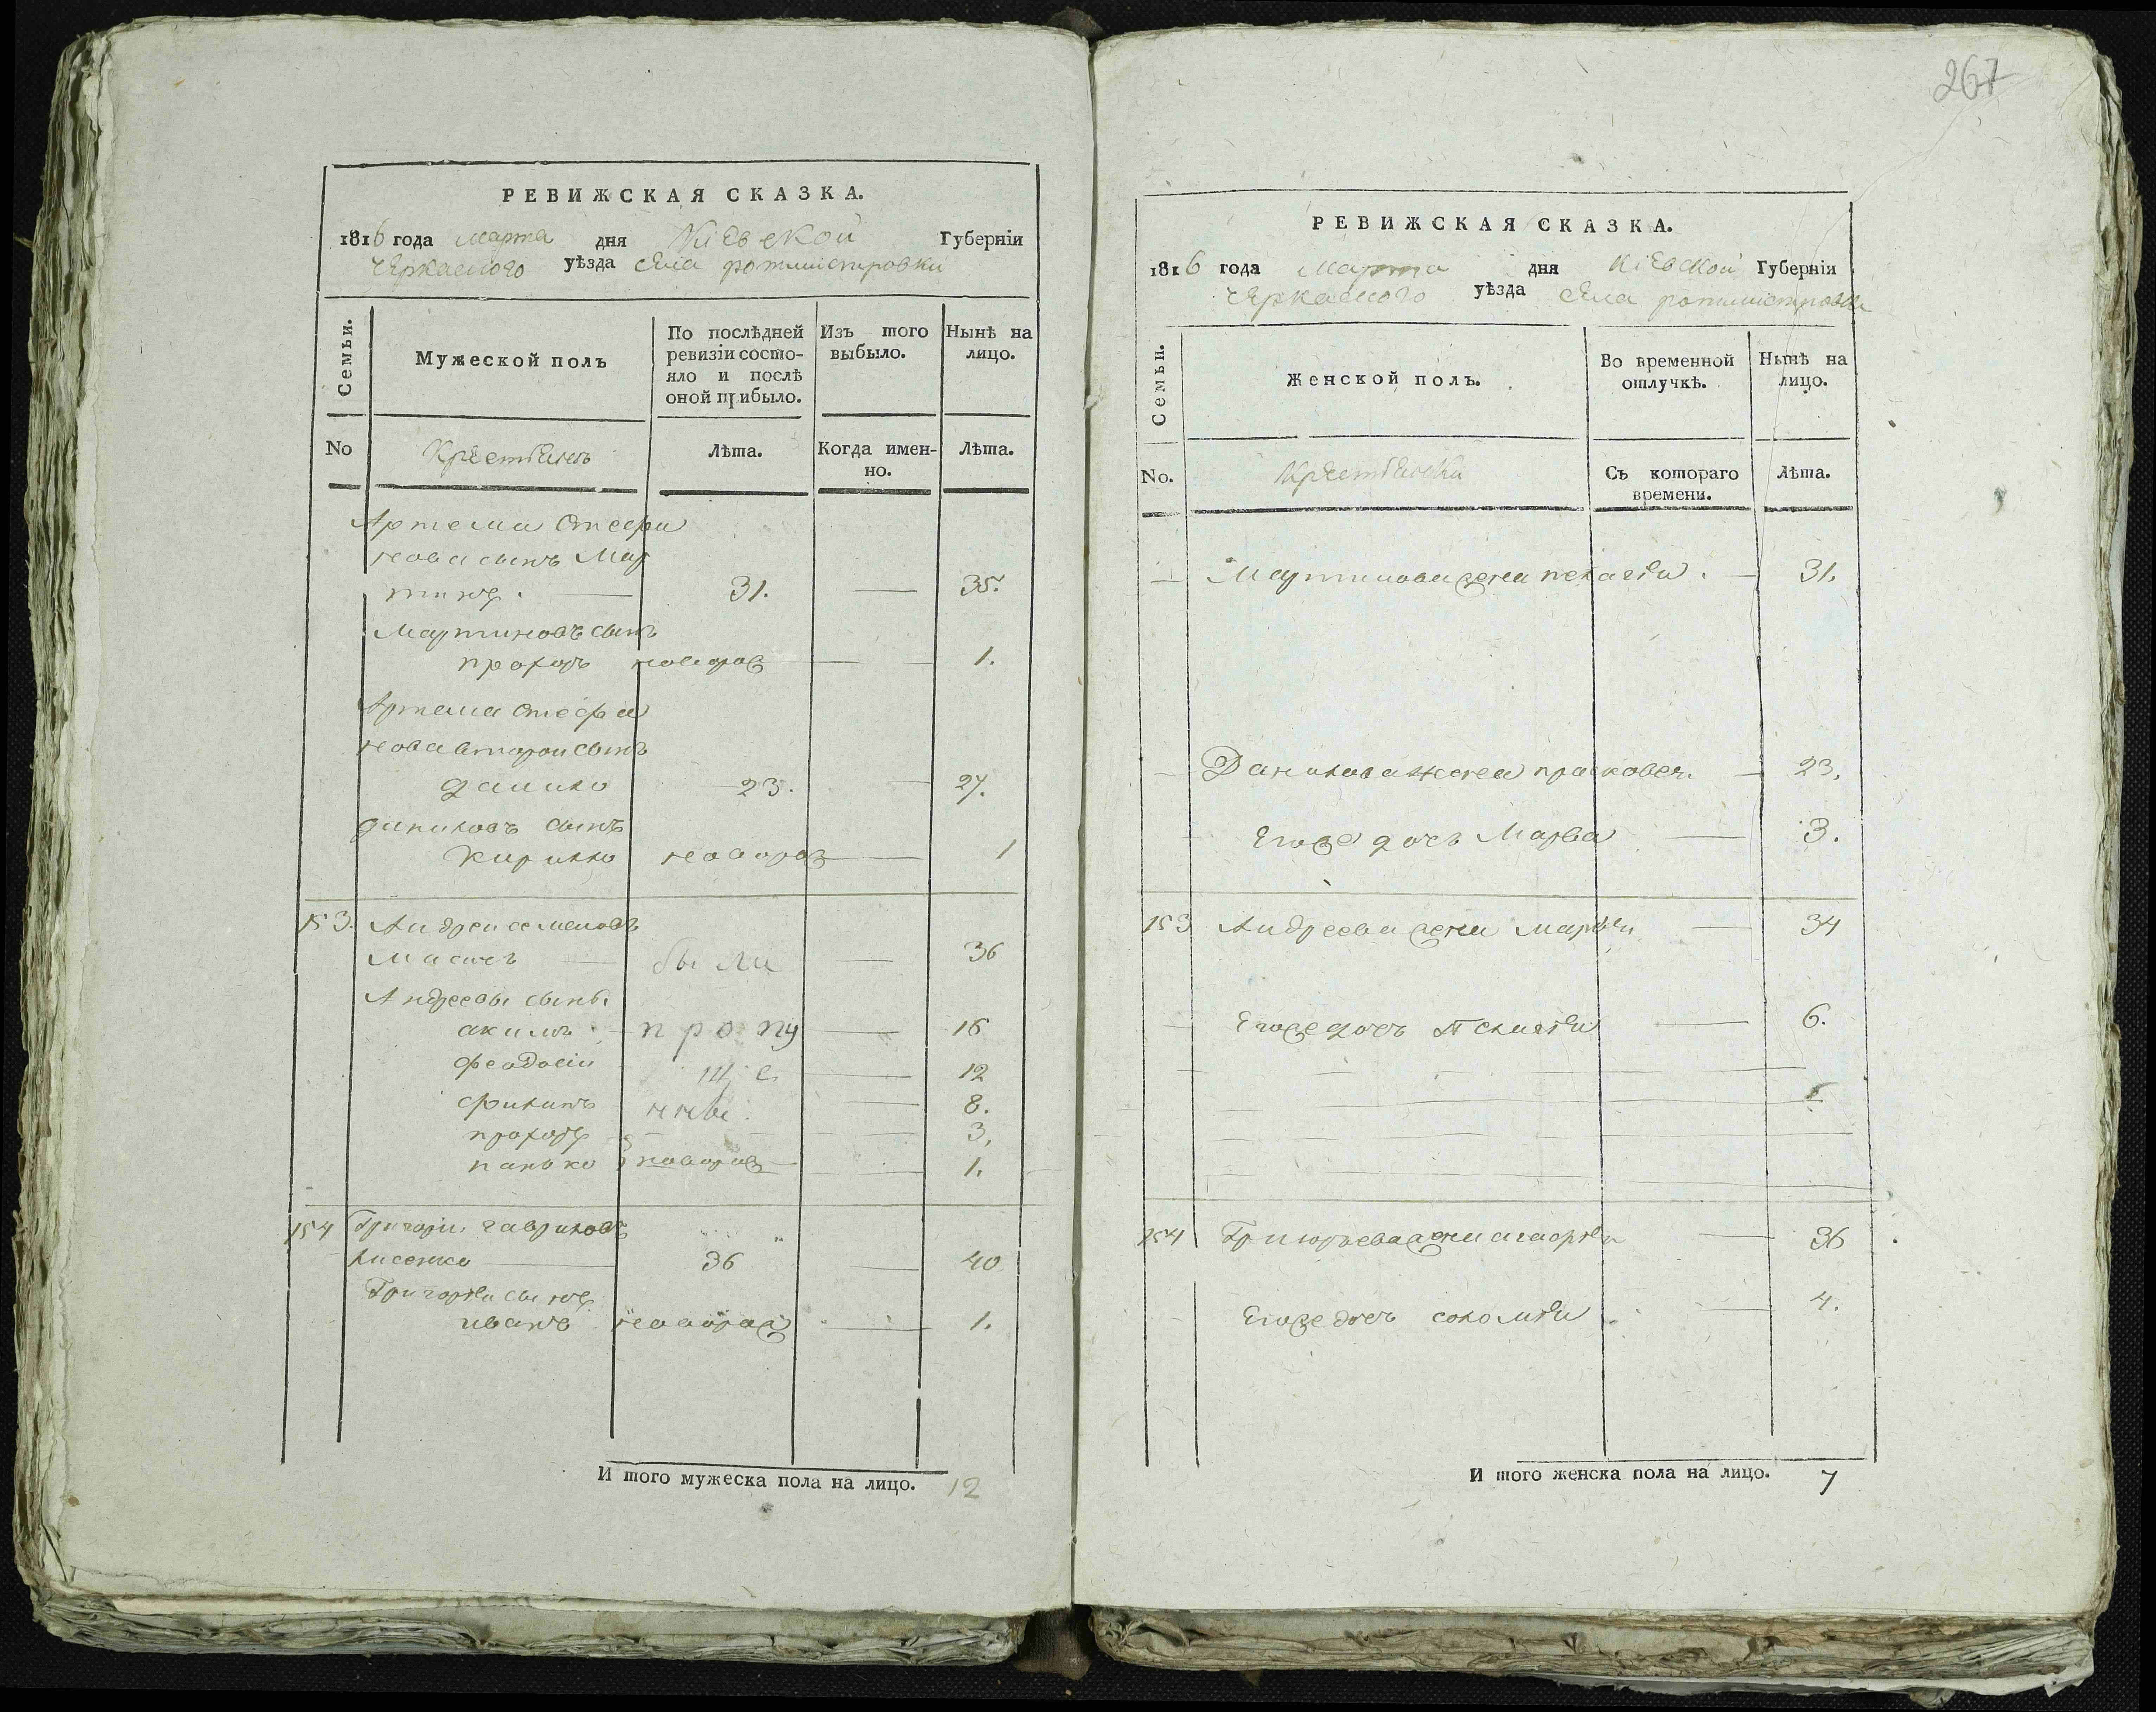 267
РЕВИЖСКАЯ СКАЗКА.
1816 года марта дня Кіевской Губерніи
Черкаского уѣзда села ротмистровки
Семьи.
Мужеской полъ
По послѣдней ревизіи состояло и послѣ оной прибыло.
Изъ того выбыло.
Нынѣ на лицо.
No
Лѣта.
Когда именно.
Лѣта.
Артема Стефа
нова сынъ Мар
тинъ. 31. 35.
Мартиновъ сынъ
прохоръ новорож 1.
Артема Стефа
нова второи сынъ
данило 23. 27.
даниловъ сынъ
кирило новорож 1
153. Андреи семеновъ
были 36
Андреевы сыны
акимъ пропу 16
феодосіи ще 12
филипъ нны. 8.
прохоръ 3.
панько новорож 1.
154 Григори гавриловъ
лисенко 36 40
Григорїи сынъ
иванъ новорож 1.
И того мужеска пола на лицо. 12
РЕВИЖСКАЯ СКАЗКА.
1816 года Марта дня Кіевской Губерніи
Черкаского уѣзда села ротмистровки
Семьи.
Женской полъ.
Во временной отлучкѣ.
Нынѣ на лицо.
No.
Съ котораго времени.
Лѣта.
Мартинова жена пелагїи. 31.
Данилова жена прасковея. 23.
Егоже дочь Марва 3.
153 Андреева жена Марїи 34
Егоже дочь 6.
154 Григорьева жена агафїи 36
Егоже дочь соломїи 4.
И того женска пола на лицо. 7